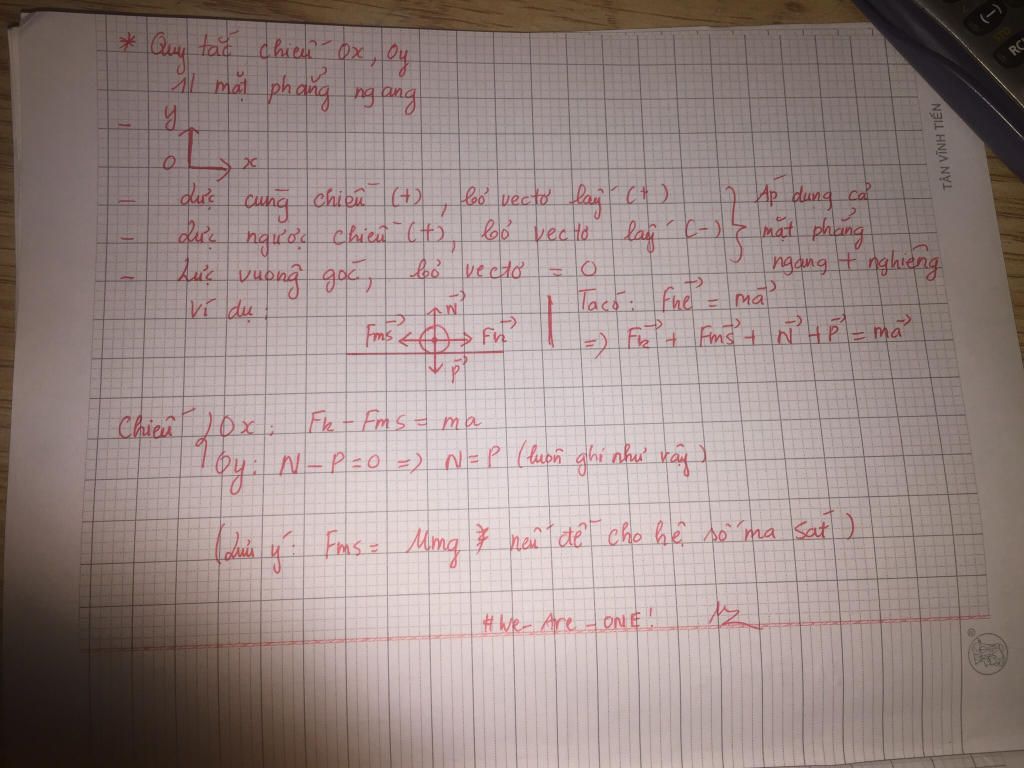 * Quy tắc chiếu Ox, Oy
1/ mặt phẳng ngang
- y
O x
- Lực cùng chiều (+), bỏ vectơ lấy (+)
- Lực ngược chiều (+), bỏ vectơ lấy (-)
- Lực vuông góc, bỏ vectơ = 0
} Áp dụng cả
mặt phẳng
ngang + nghiêng
Ví dụ:
N→
Fms→ Fk→
P→
Ta có: Fhệ→ = ma→
=> Fk→ + Fms→ + N→ + P→ = ma→
Chiếu Ox: Fk - Fms = ma
Oy: N - P = 0 => N = P (luôn ghi như vậy)
(chú ý: Fms = µmg nếu đề cho hệ số ma sát)
#We-Are-ONE!
TÂN VĨNH TIẾN
®
(-)